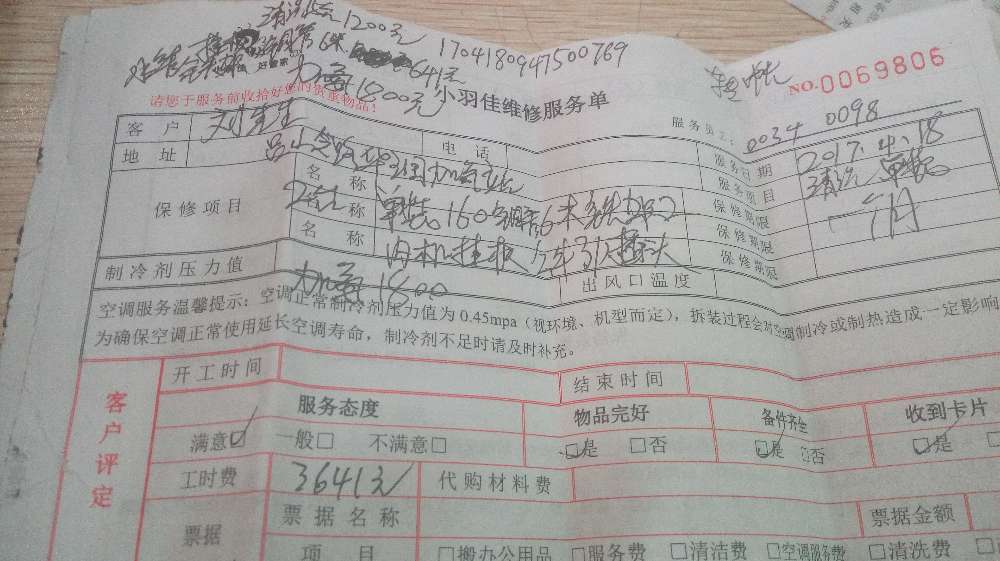 清洗 1200元
铜管6米 641元 1704180947500769
加氟1800元
NO.0069806
请您于服务前收拾好您的贵重物品!
小羽佳维修服务单
服务员工: 0034 0098
客户 刘先生 电话 服务日期 2017.4.18
地址 加气站 服务项目 清洗 单装
保修项目 名称 保修期限 一个月
名称 单装 160 铜管6米 保修期限
名称 内机挂板 保修期限
制冷剂压力值 加氟1800 出风口温度
空调服务温馨提示:空调正常制冷剂压力值为0.45mpa(视环境、机型而定),拆装过程会对空调制冷或制热造成一定影响
为确保空调正常使用延长空调寿命,制冷剂不足时请及时补充。
客户评定
开工时间 结束时间
服务态度 物品完好 备件齐全 收到卡片
满意☑ 一般□ 不满意□ ☑是 □否 ☑是 □否 ☑是
工时费 3641元 代购材料费
票据 票据名称 票据金额
项目 □搬办公用品 □服务费 □清洁费 □空调服务费 □清洗费